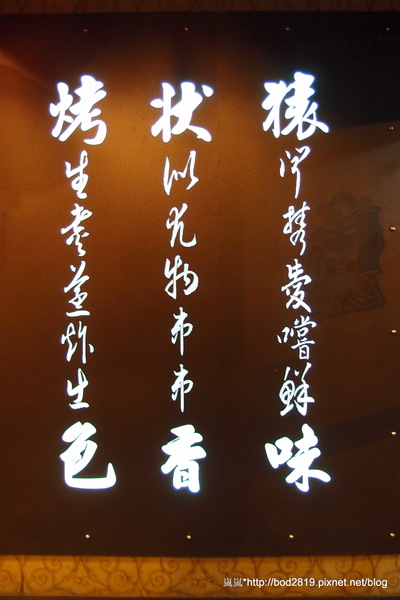 猿愛嚐鮮味
狀似尤物香
烤生煮蒸炸生色
嵐嵐*http://bod2819.pixnet.net/blog